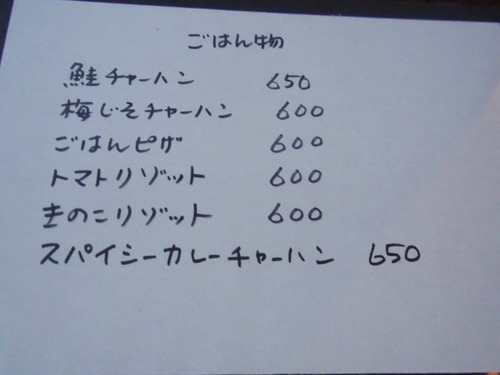 ごはん物
鮭チャーハン 650
梅じそチャーハン 600
ごはんピザ 600
トマトリゾット 600
きのこリゾット 600
スパイシーカレーチャーハン 650